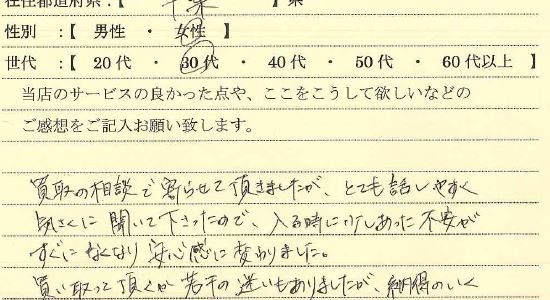 在住都道府県：【 千葉 】県
性別 ：【 男性 ・ 女性 】
世代 ：【 20代 ・ 30代 ・ 40代 ・ 50代 ・ 60代以上 】
当店のサービスの良かった点や、ここをこうして欲しいなどの
ご感想をご記入お願い致します。
買取の相談で寄らせて頂きましたが、とても話しやすく
気さくに聞いて下さったので、入る時に少しあった不安が
すぐになくなり安心感に変わりました。
買い取って頂くか若干の迷いもありましたが、納得のいく